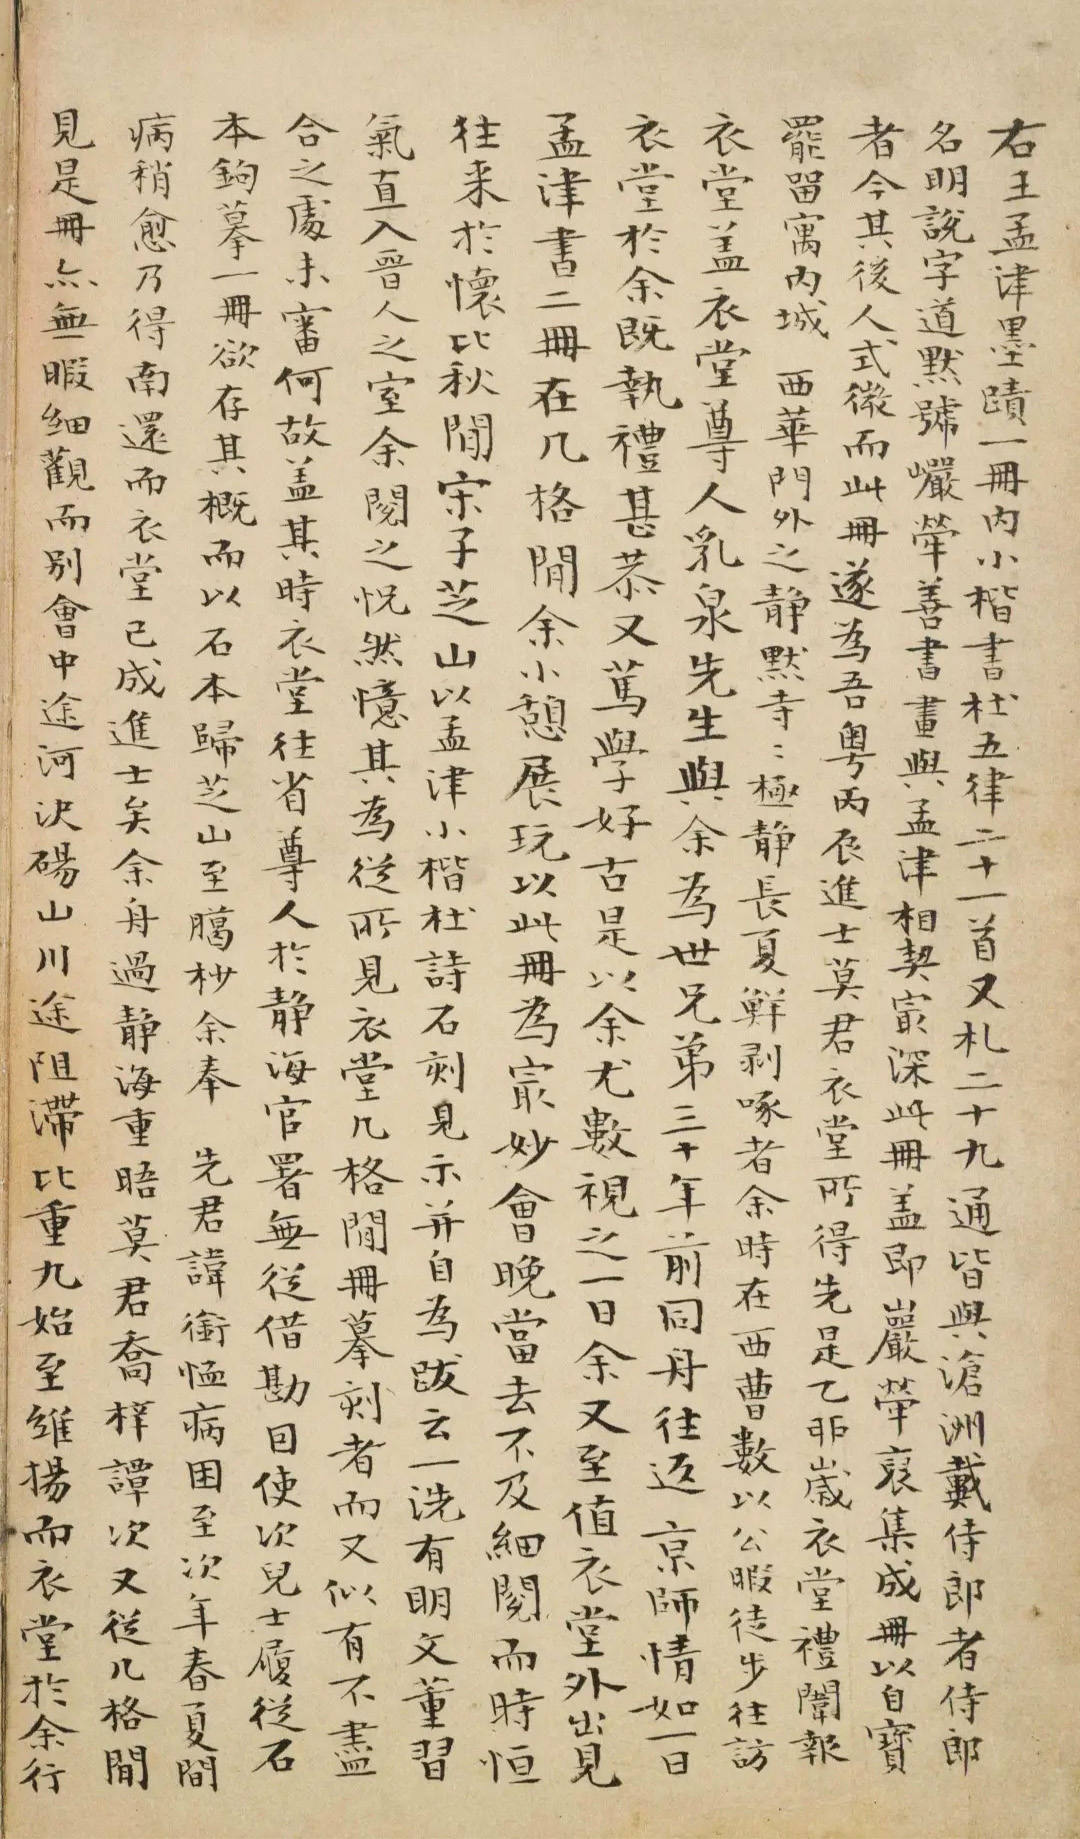 右王孟津墨蹟一冊內小楷書杜五律二十一首又札二十九通皆與滄洲戴侍郎者侍郎
名明說字道默號巖犖善書畫與孟津相契寂深此冊盖即巖犖裒集成冊以自寶
者今其後人式微而此冊遂為吾粵丙辰進士莫君衣堂所得先是乙卯歲衣堂禮闈報
罷留寓內城 西華門外之静默寺〻極静長夏鮮剥啄者余時在西曹數以公暇徒步往訪
衣堂盖衣堂尊人乳泉先生與余為世兄弟三十年前同舟往返 京師情如一日
衣堂於余既執禮甚恭又篤學好古是以余尤數視之一日余又至值衣堂外出見
孟津書二冊在几格間余小憩展玩以此冊為寂妙會晚當去不及細閱而時恒
往来於懷比秋間宋子芝山以孟津小楷杜詩石刻見示并自為跋云一洗有明文董習
氣直入晉人之室余閱之怳然憶其為從所見衣堂几格間冊摹刻者而又似有不盡
合之處未審何故盖其時衣堂往省尊人於静海官署無從借勘因使次兒士履從石
本鉤摹一冊欲存其概而以石本歸芝山至臈杪余奉 先君諱銜恤病困至次年春夏間
病稍愈乃得南還而衣堂已成進士矣余舟過静海重晤莫君喬梓譚次又從几格間
見是冊亦無暇細觀而别會中途河決碭山川途阻滯比重九始至維揚而衣堂於余行